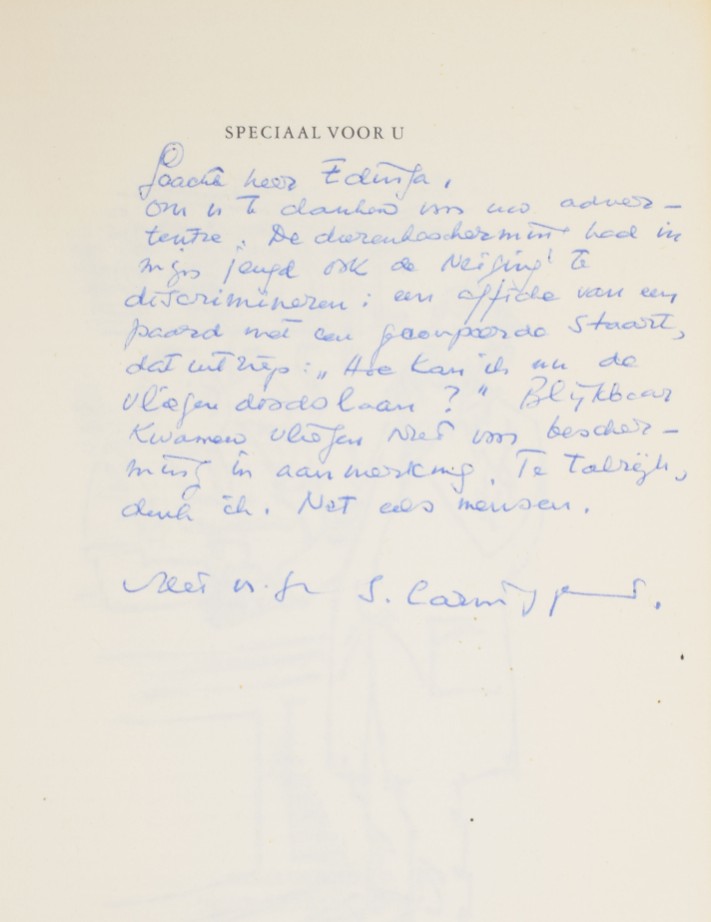 SPECIAAL VOOR U
Geachte heer
om u te danken voor uw adver-
tentie. De dierenbescherming had in
mijn jeugd ook de neiging te
discrimineren: een affiche van een
paard met een gecoupeerde staart,
dat uitriep: „Hoe kan ik nu de
vliegen doodslaan?" Blijkbaar
kwamen vliegen niet voor bescher-
ming in aanmerking. Te talrijk,
denk ik. Net als mensen.
Met v. gr S. Carmiggelt.